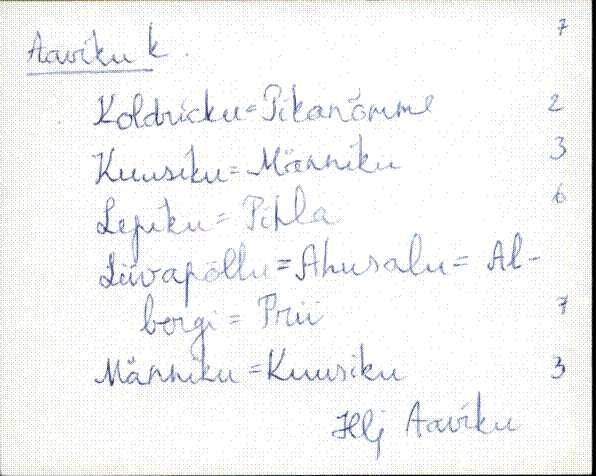 7
Aaviku k.
Koldricku=Pikanõmme 2
Kuusiku=Männiku 3
Lepiku=Pihla 6
Liivapõllu=Ahusalu=Al-
borgi=Prii 7
Männiku=Kuusiku 3
Hlj Aaviku